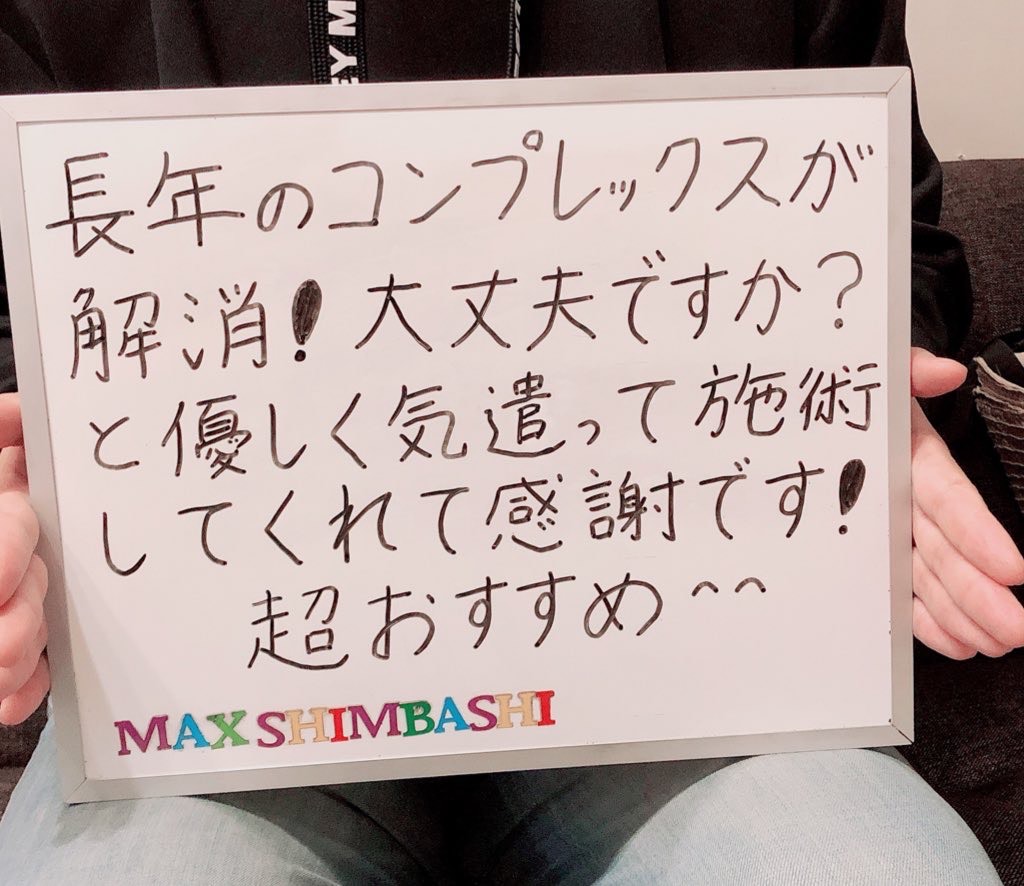 EY M
長年のコンプレックスが
解消!大丈夫ですか?
と優しく気遣って施術
してくれて感謝です!
超おすすめ^^
MAX SHIMBASHI